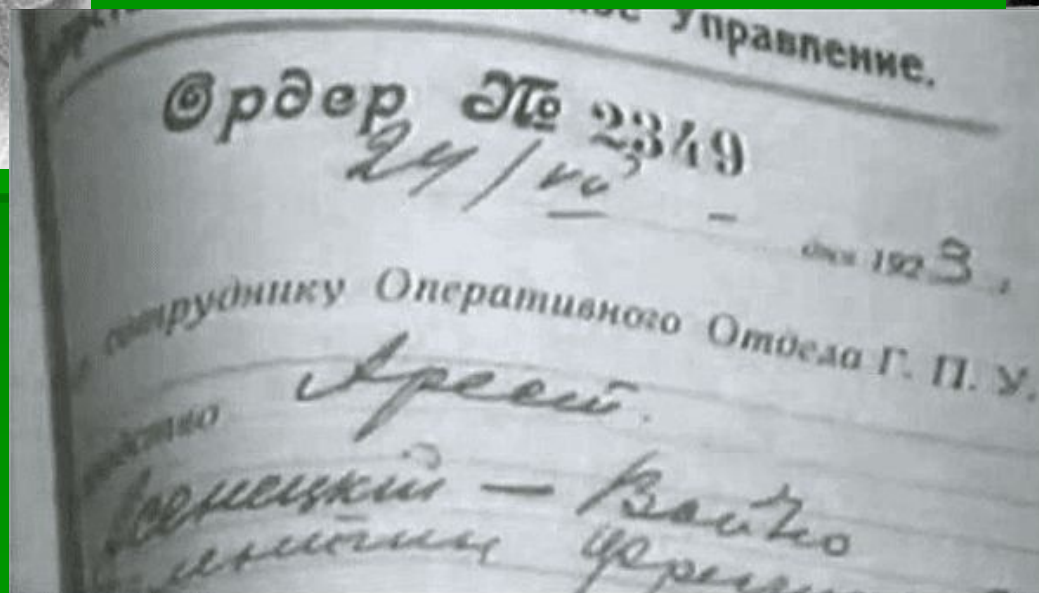 Управление.
Ордер № 2349
24/VII – дня 1923 г.
сотруднику Оперативного Отдела Г. П. У.
Арест.
Войно